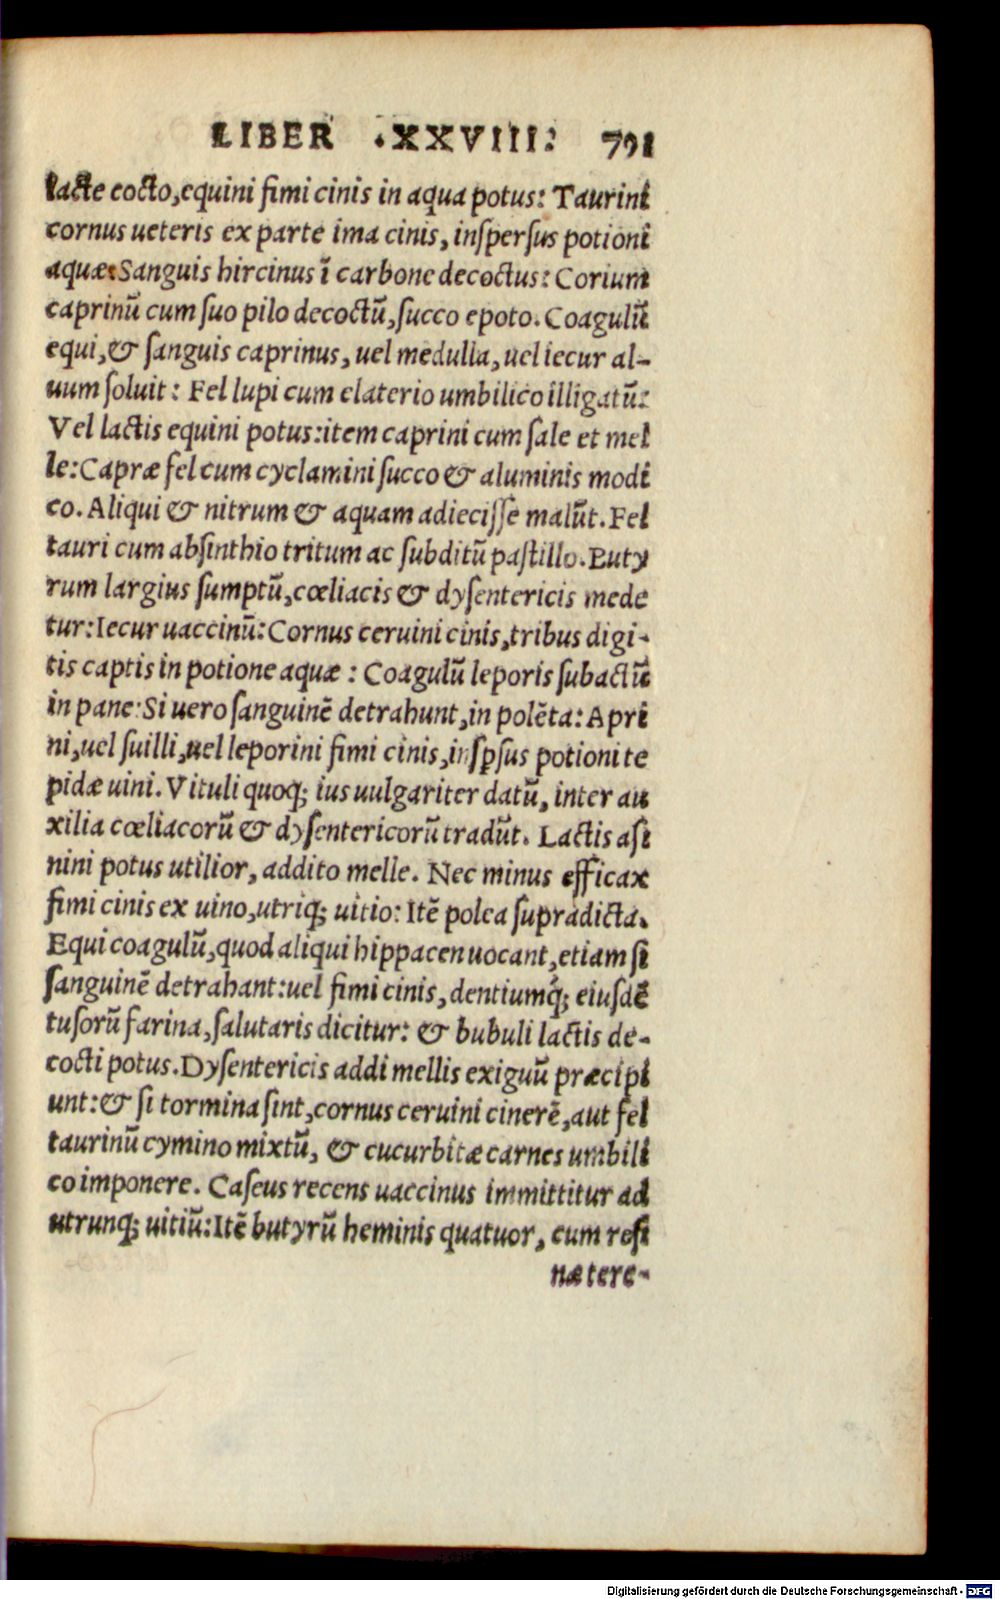 LIBER .XXVIII. 791
lacte cocto,equini fimi cinis in aqua potus: Taurini
cornus ueteris ex parte ima cinis, inſperſus potioni
aquæ:Sanguis hircinus ī carbone decoctus: Corium
caprinū cum ſuo pilo decoctū,ſucco epoto. Coagulū
equi,& ſanguis caprinus, uel medulla, uel iecur al-
uum ſoluit: Fel lupi cum elaterio umbilico illigatū:
Vel lactis equini potus:item caprini cum ſale et mel
le:Capræ fel cum cyclamini ſucco & aluminis modi
co. Aliqui & nitrum & aquam adieciſſe malūt. Fel
tauri cum abſinthio tritum ac ſubditū paſtillo. Buty
rum largius ſumptū,cœliacis & dyſentericis mede
tur:Iecur uaccinū: Cornus ceruini cinis,tribus digi-
tis captis in potione aquæ : Coagulū leporis ſubactū
in pane:Si uero ſanguinē detrahunt,in polēta: Apri
ni,uel ſuilli,uel leporini fimi cinis,inſꝑſus potioni te
pidæ uini. Vituli quoq; ius uulgariter datū, inter au
xilia cœliacorū & dyſentericorū tradūt. Lactis aſi
nini potus utilior, addito melle. Nec minus efficax
fimi cinis ex uino,utriq; uitio: Itē polea ſupradicta.
Equi coagulū,quod aliqui hippacen uocant,etiam ſi
ſanguinē detrahant:uel fimi cinis, dentiumq́; eiuſdē
tuſorū farina,ſalutaris dicitur: & bubuli lactis de-
cocti potus. Dyſentericis addi mellis exiguū præcipi
unt:& ſi tormina ſint,cornus ceruini cinerē,aut fel
taurinū cymino mixtū, & cucurbitæ carnes umbili
co imponere. Caſeus recens uaccinus immittitur ad
utrunq; uitiū:Itē butyrū heminis quatuor, cum reſi
næ tere-
Digitalisierung gefördert durch die Deutsche Forschungsgemeinschaft - DFG